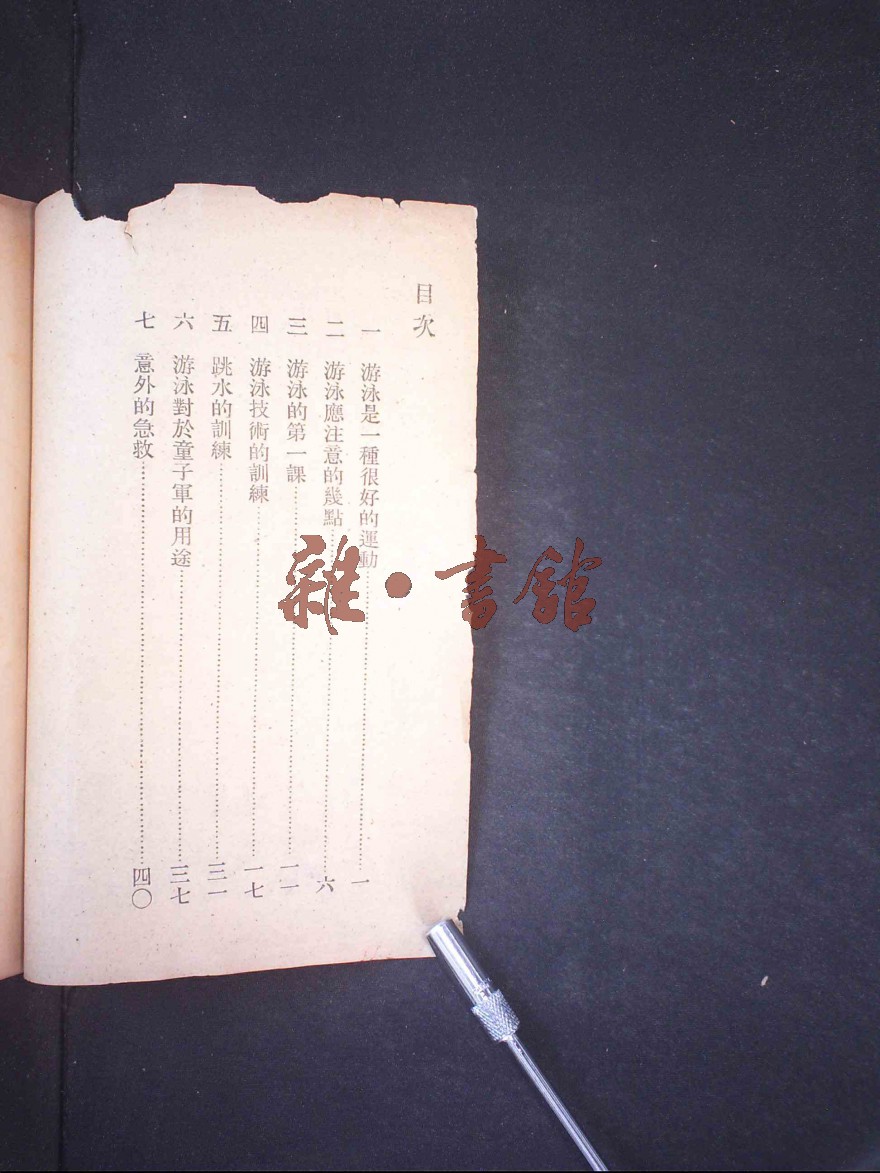 目次
一 游泳是一種很好的運動……一
二 游泳應注意的幾點……六
三 游泳的第一課……一一
四 游泳技術的訓練……一七
五 跳水的訓練……三一
六 游泳對於童子軍的用途……三七
七 意外的急救……四〇
雜·書館